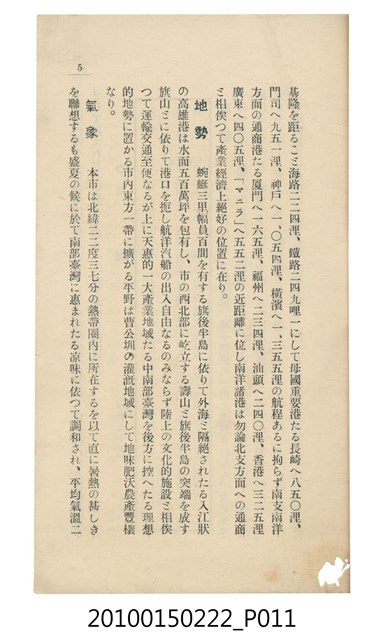 基隆を距ること海路二二四浬、鐵路二四九哩一にして母國重要港たる長崎へ八五〇浬、
門司へ九五一浬、神戸へ一、〇五四浬、橫濱へ一、三五五浬の航程あるに拘らず南支南洋
方面の通商港たる厦門へ一六五浬、福州へ二三四浬、汕頭へ二四〇浬、香港へ三二五浬
廣東へ四〇五浬、「マニラ」へ五五二浬の近距離に位し南洋諸港は勿論北支方面への通商
と相俟つて產業經濟上絕好の位置に在り。
地勢 蜿蜒三里幅員百間を有する旗後半島に依りて外海と隔絕されたる入江狀
の高雄港は水面五百萬坪を包有し、市の西北部に屹立する壽山と旗後半島の突端を成す
旗山とに依りて港口を扼し航洋汽船の出入自由なるのみならず陸上の文化的施設と相俟
つて運輸交通至便なるが上に天惠的一大產業地域たる中南部臺灣を後方に控へたる理想
的地勢に置かる市內東方一帶に擴がる平野は曹公圳の灌漑地域にして地味肥沃農產豐穰
なり。
氣象 本市は北緯二二度三七分の熱帶圈內に所在するを以て直に暑熱の甚しき
を聯想するも盛夏の候に於て南部臺灣に惠まれたる凉味に依つて調和され、平均氣溫二
5
20100150222_P011